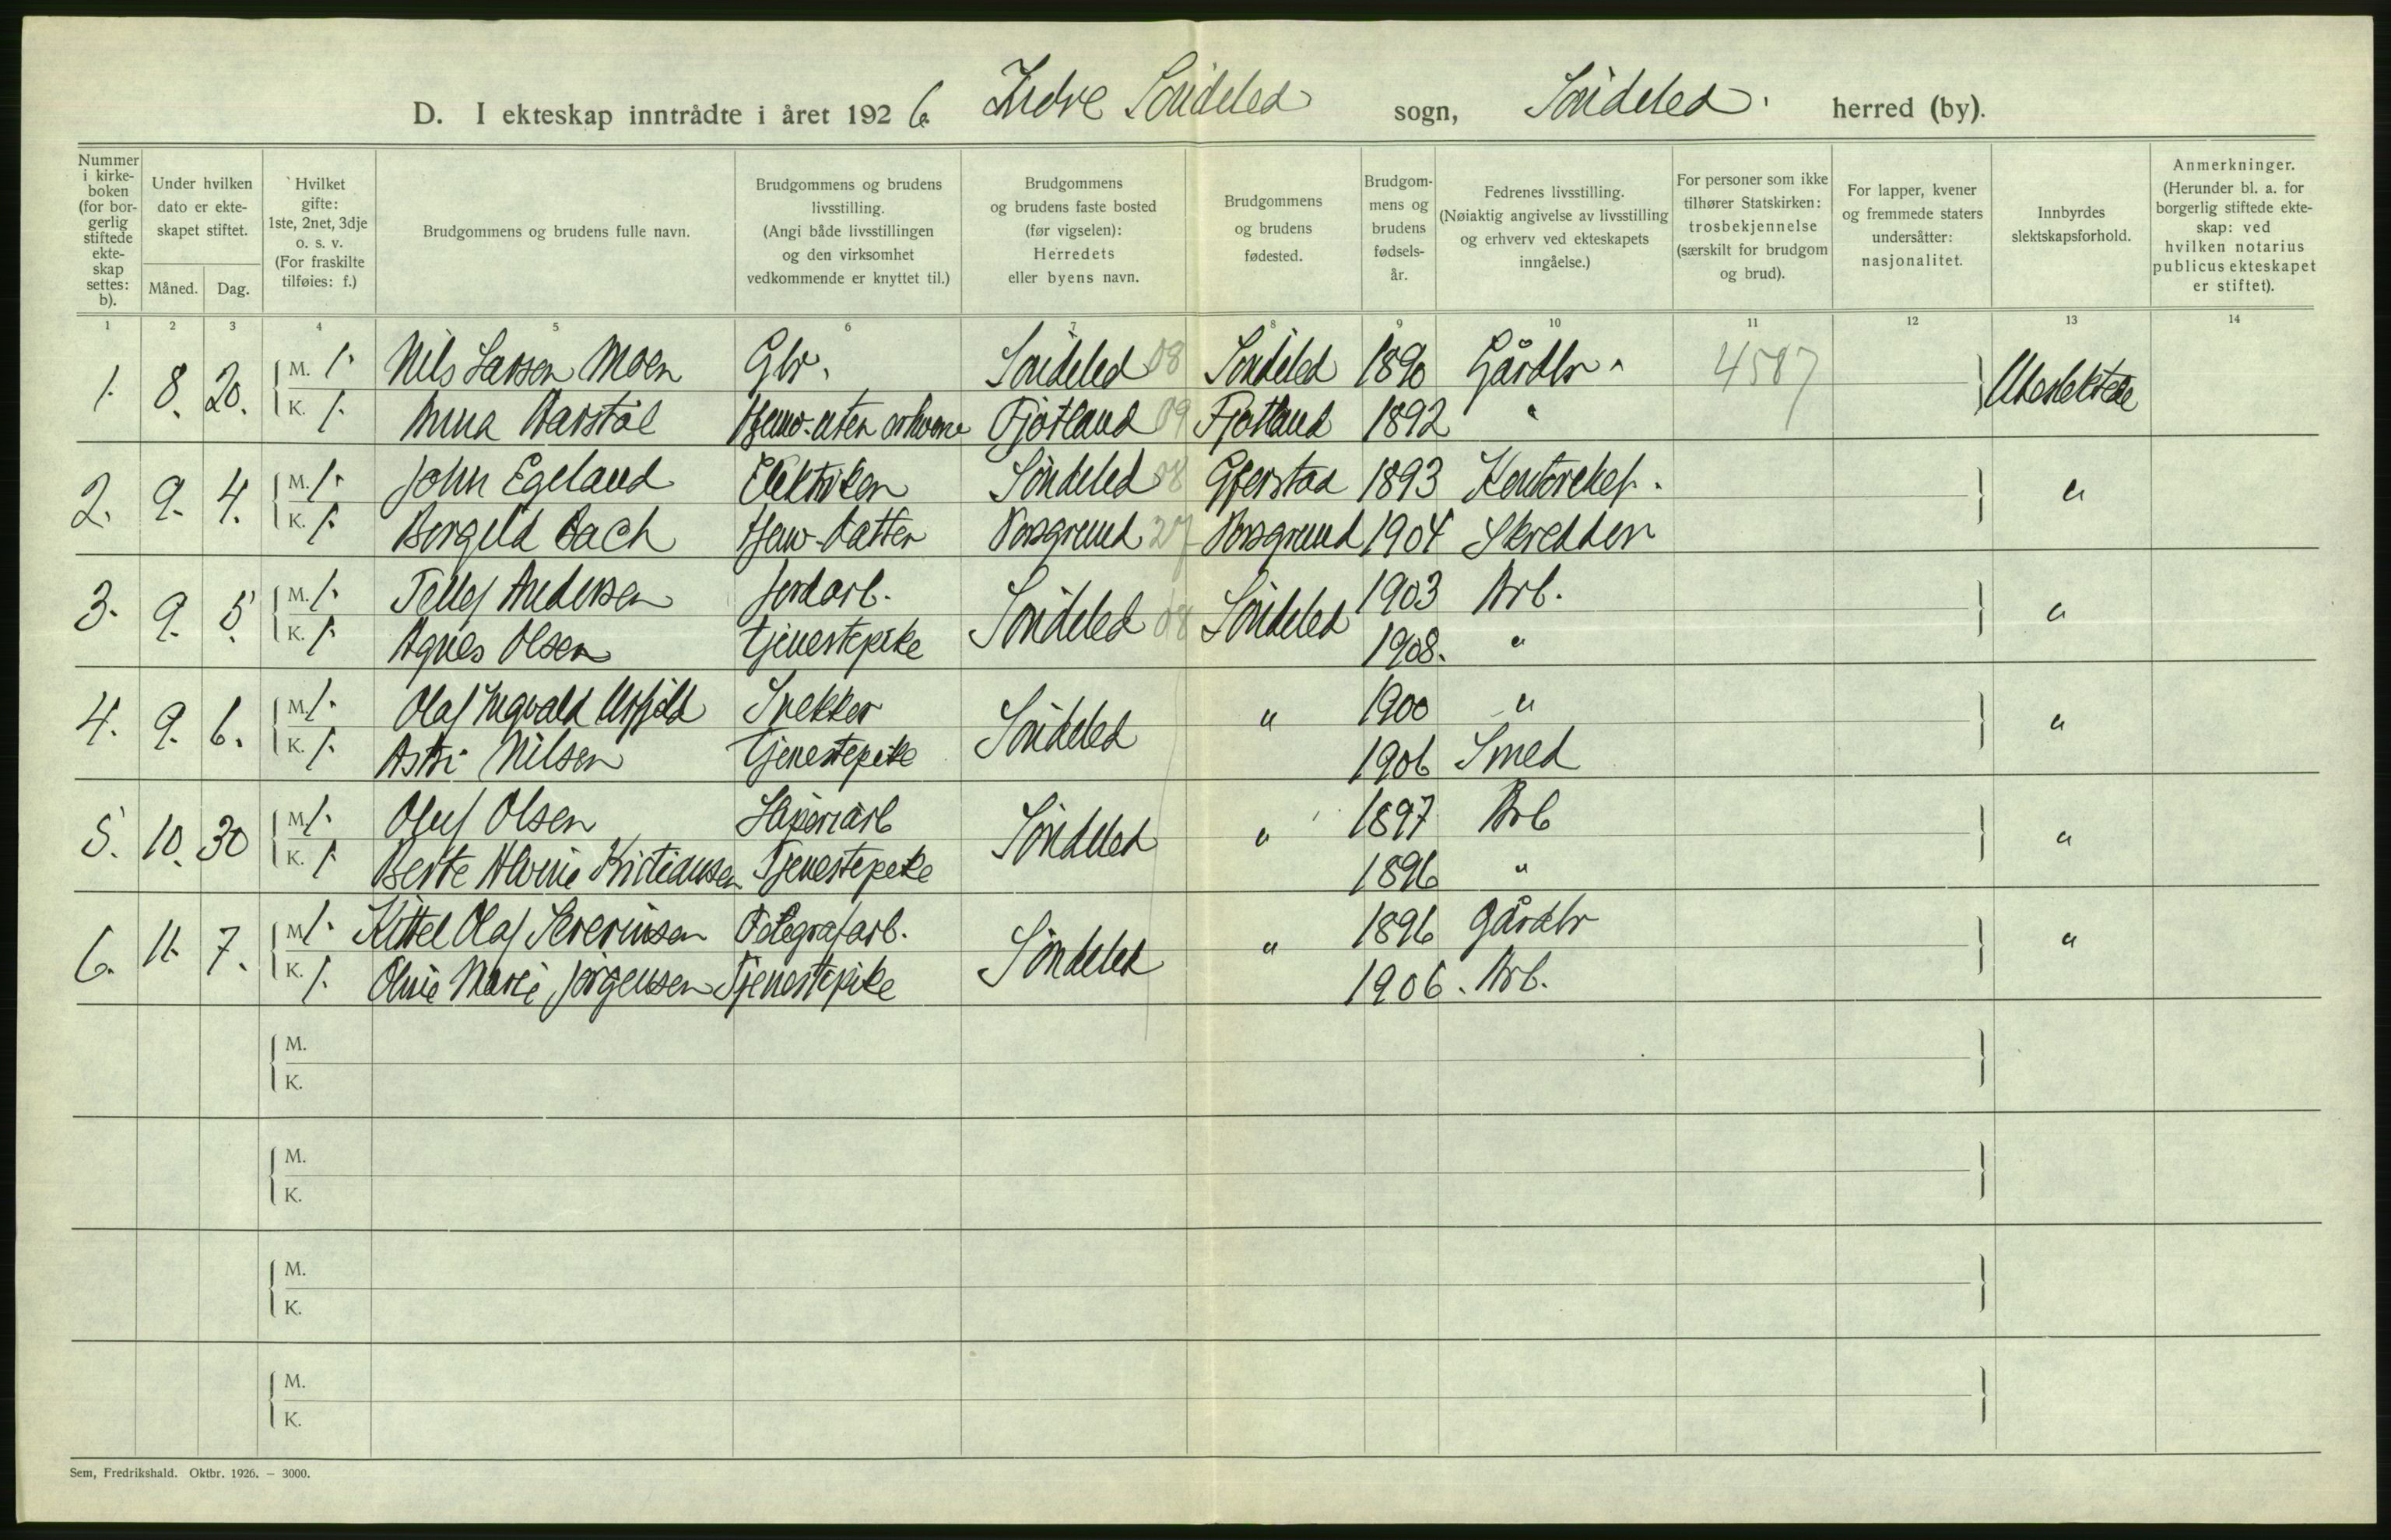 D. I ekteskap inntrådte i året 1926. Indre Söndeled sogn, Söndeled. herred (by).
Nummer i kirkeboken (for borgerlig stiftede ekteskap settes: b).
Under hvilken dato er ekteskapet stiftet.
Måned. Dag.
Hvilket gifte: 1ste, 2net, 3dje o. s. v. (For fraskilte tilføies: f.)
Brudgommens og brudens fulle navn.
Brudgommens og brudens livsstilling. (Angi både livsstillingen og den virksomhet vedkommende er knyttet til.)
Brudgommens og brudens faste bosted (før vigselen): Herredets eller byens navn.
Brudgommens og brudens fødested.
Brudgommens og brudens fødselsår.
Fedrenes livsstilling. (Nøiaktig angivelse av livsstilling og erhverv ved ekteskapets inngåelse.)
For personer som ikke tilhører Statskirken: trosbekjennelse (særskilt for brudgom og brud).
For lapper, kvener og fremmede staters undersåtter: nasjonalitet.
Innbyrdes slektskapsforhold.
Anmerkninger. (Herunder bl. a. for borgerlig stiftede ekteskap: ved hvilken notarius publicus ekteskapet er stiftet).
1 2 3 4 5 6 7 8 9 10 11 12 13 14
1. 8. 20. M. 1. Nils Larsen Moen Gbr. Söndeled 08 Söndeled 1890 Gårdbr. 4587 Ubeslektede
K. 1. Anna Hjemv. uten Fjotland 09 Fjotland 1892 "
2. 9. 4. M. 1. John Egeland Elektriker Söndeled 08 Gjerstad 1893 Kontorchef. "
K. 1. Borgild Bach Hjemv. datter Porsgrund 27 Porsgrund 1904 Skredder
3. 9. 5. M. 1. Tellef Andersen Jordarb. Söndeled 08 Söndeled 1903 Arb. "
K. 1. Agnes Olsen Tjenestepike 1908. "
4. 9. 6. M. 1. Olaf Ingvald Snekker Söndeled " 1900 " "
K. 1. Astri Nilsen Tjenestepike 1906 Smed
5. 10. 30 M. 1. Oluf Olsen Söndeled " 1897 Arb "
K. 1. Berte Alvine Kristiansen Tjenestepike 1896 "
6. 11. 7. M. 1. Kittel Olaf Severinsen Telegrafarb. Söndeled " 1896 Gårdbr "
K. 1. Oline Marie Jörgensen Tjenestepike 1906. Arb.
M.
K.
M.
K.
M.
K.
M.
K.
Sem, Fredrikshald. Oktbr. 1926. — 3000.